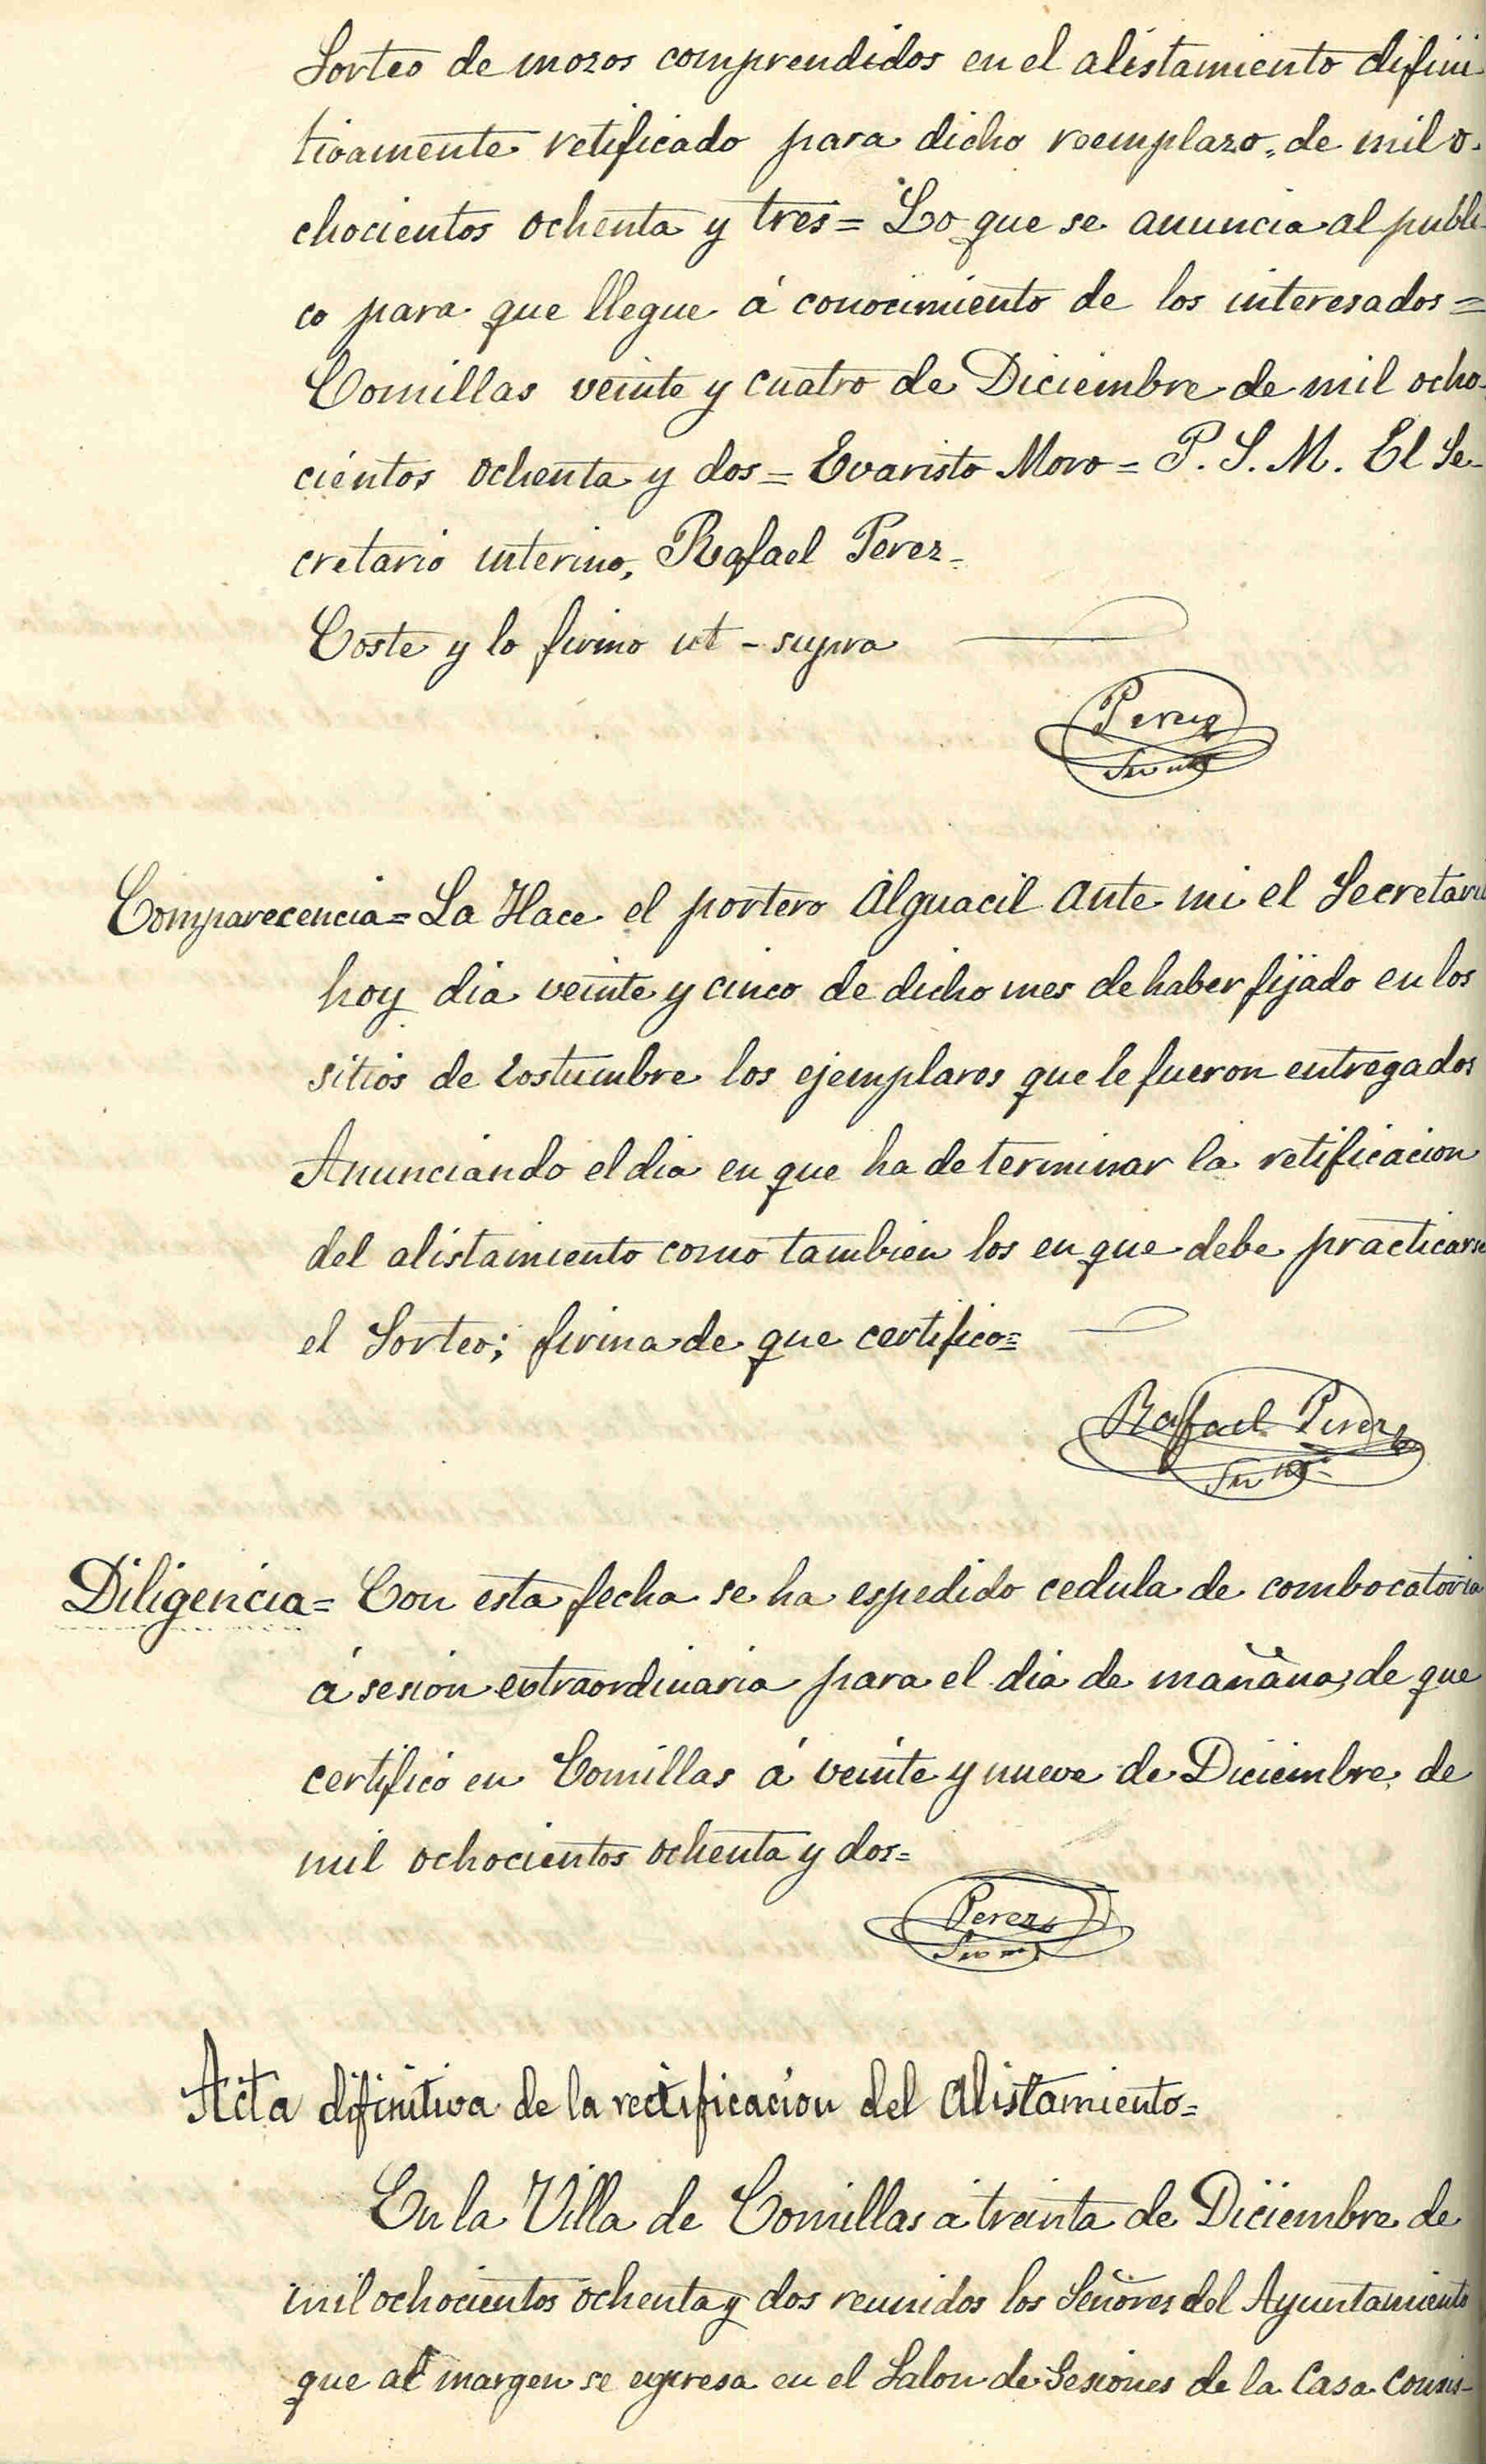 Sorteo de mozos comprendidos en el alistamiento difini
tivamente retificado para dicho reemplazo, de mil o-
chocientos ochenta y tres = Lo que se anuncia al publi-
co para que llegue á conocimiento de los interesados =
Comillas veinte y cuatro de Diciembre de mil ocho-
cientos ochenta y dos = Evaristo Moro = P. S. M. El Se-
cretario interino, Rafael Perez -
Coste y lo firmo ut - supra
Perez
Comparecencia = La Hace el portero Alguacil ante mi el Secretario
hoy dia veinte y cinco de dicho mes de haber fijado en los
sitios de costumbre los ejemplares que le fueron entregados
Anunciando el dia en que ha de terminar la retificacion
del alistamiento como tambien los en que debe practicarse
el Sorteo; firma de que certifico =
Rafael Perez
Diligencia = Con esta fecha se ha espedido cedula de combocatoria
á sesion extraordinaria para el dia de mañana, de que
certifico en Comillas á veinte y nueve de Diciembre de
mil ochocientos ochenta y dos =
Perez
Acta difinitiva de la rectificacion del Alistamiento =
En la Villa de Comillas a treinta de Diciembre de
mil ochocientos ochenta y dos reunidos los Señores del Ayuntamiento
que al margen se egpresa en el Salon de Sesiones de la Casa Consis-